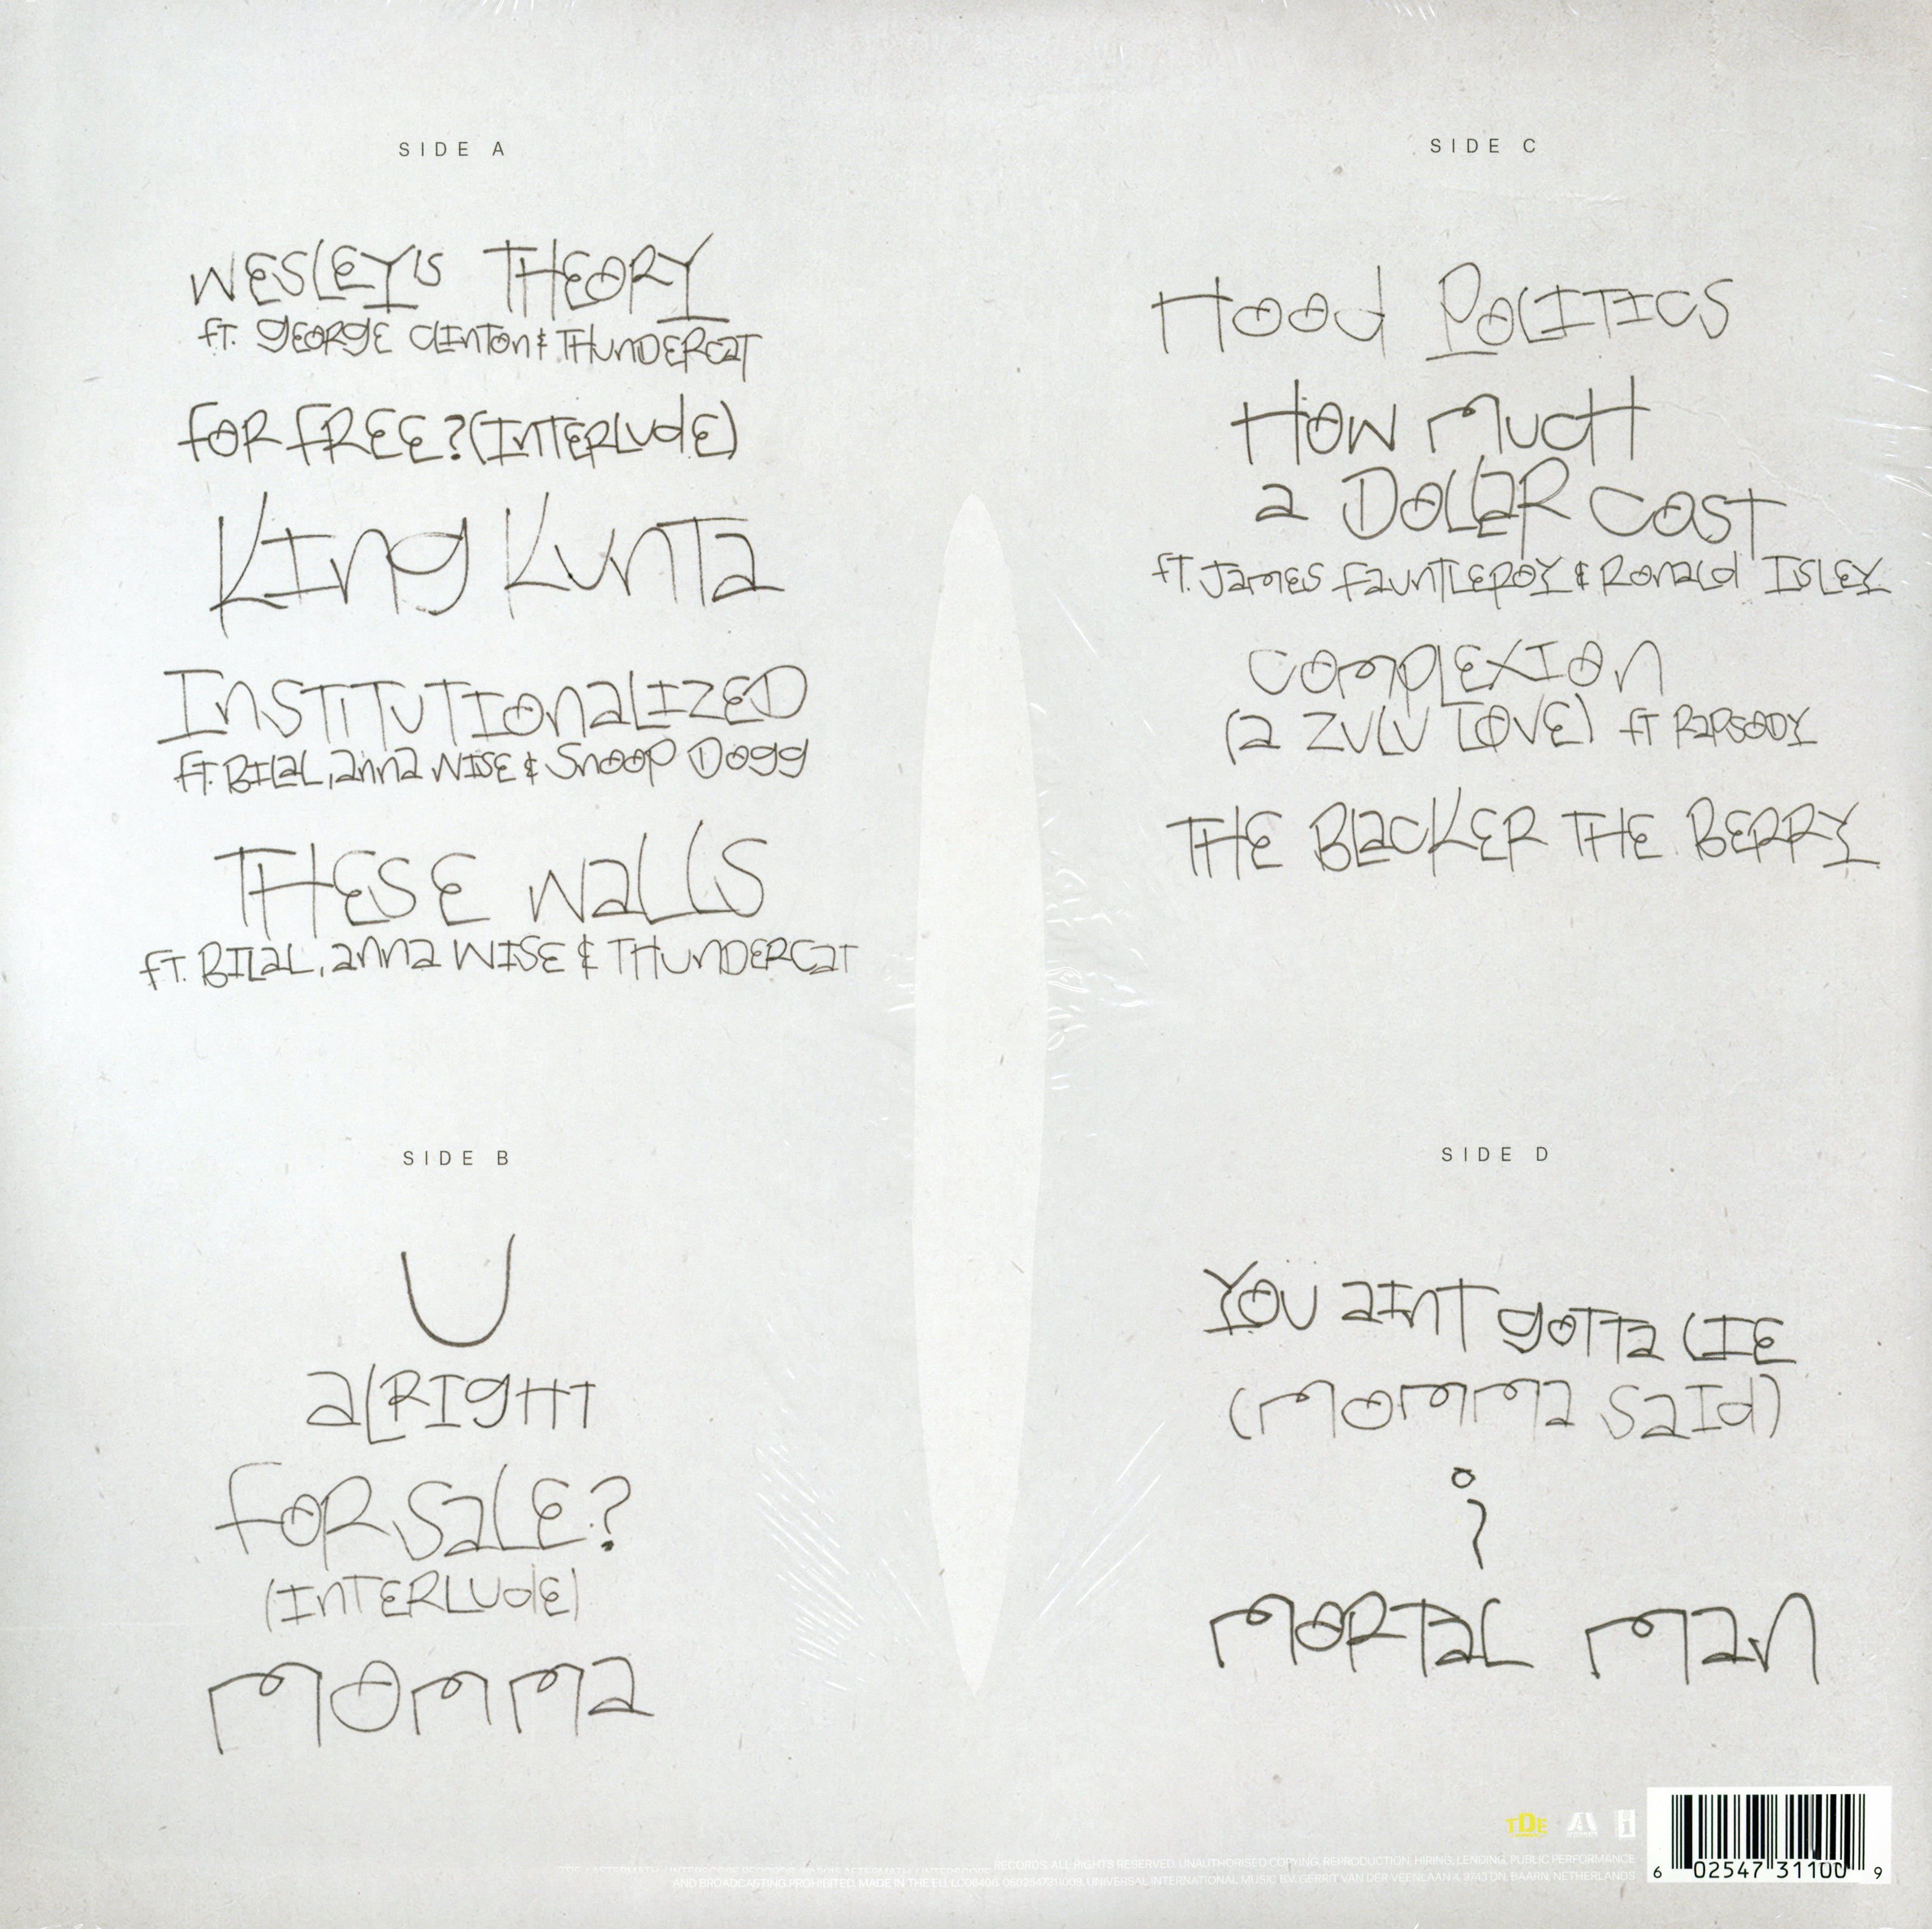 SIDE A
WESLEY'S THEORY
fT. gEORgE CLINTON & THUNDERCaT
fOR fREE? (INTERLUdE)
KINg KUNTa
INSTITUTIONaLIZED
fT. BILaL, aNNa WISE & SNOOP DOgg
THESE WaLLS
fT. BILaL, aNNa WISE & THUNDERCaT
SIDE B
U
aLRIgHT
fOR SaLE?
(INTERLUdE)
MOMMa
SIDE C
HOOd POLITICS
HOW MUCH
a DOLLaR COST
fT. JaMES faUNTLEROY & RONaLd ISLEY
COMPLEXION
(a ZULU LOVE) fT RaPSODY
THE BLaCKER THE BERRY
SIDE D
YOU aINT gOTTa LIE
(MOMMa SaId)
i
MORTaL MaN
TDE
RECORDS. ALL RIGHTS RESERVED. UNAUTHORISED COPYING, REPRODUCTION, HIRING, LENDING, PUBLIC PERFORMANCE
AND BROADCASTING PROHIBITED. MADE IN THE EU. LC06406. 0602547311009. UNIVERSAL INTERNATIONAL MUSIC B.V. GERRIT VAN DER VEENLAAN 4, 3743 DN, BAARN, NETHERLANDS
6 02547 31100 9